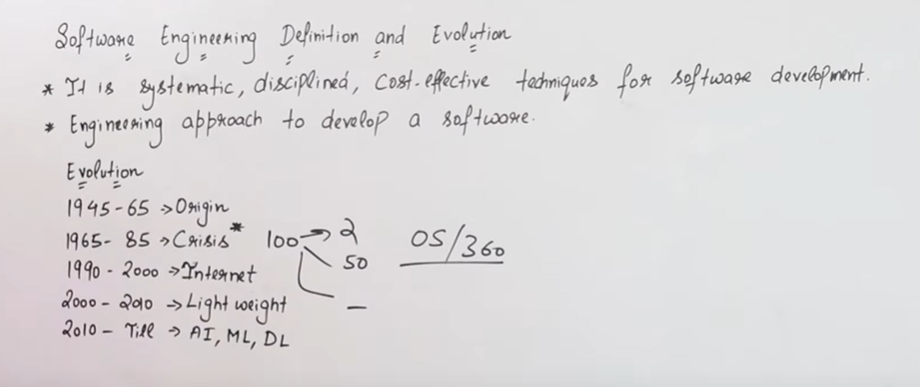 Software Engineering Definition and Evolution
* It is systematic, disciplined, cost-effective techniques for software development.
* Engineering approach to develop a software.
Evolution
1945-65 → Origin
1965-85 → Crisis * 100 → 2 OS/360
50
1990-2000 → Internet
2000-2010 → Light weight —
2010- Till → AI, ML, DL